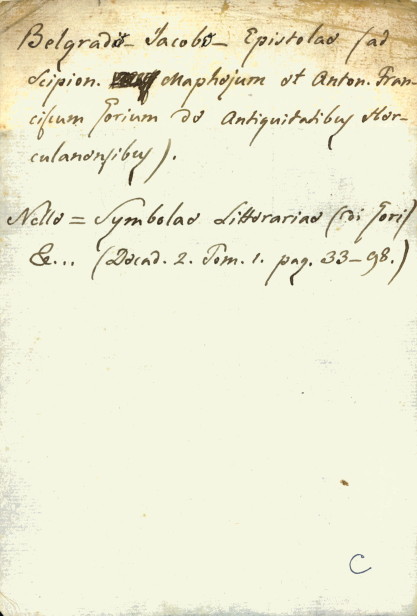 Belgrado - Jacobo - Epistolae (ad
Scipion. Maphejum et Anton. Fran-
ciscum Gorium de Antiquitatibus Her-
culanensibus).
Nello = Symbolae Litterariae (di Gori)
&... (Decad. 2. Tom. 1. pag. 33-98.)
C